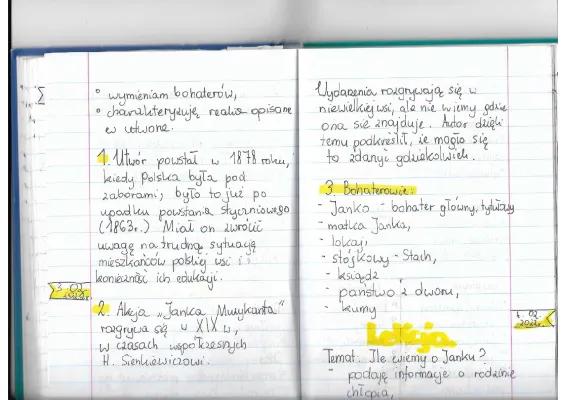 ° wymieniam bohaterów,
° charakteryzuję realia opisane
w utworze.
1. Utwór powstał w 1878 roku,
kiedy Polska była pod
zaborami, było to już po
upadku powstania styczniowego
(1863r.) Miał on zwrócić
uwagę na trudną sytuację
mieszkańców polskiej wsi i
konieczność ich edukacji.
2. Akcja „Janka Muzykanta"
rozgrywa się w XIX w,
w czasach współczesnych
H. Sienkiewiczowi.
Wydarzenia rozgrywają się w
niewielkiej wsi, ale nie wiemy gdzie
ona się znajduje. Autor dzięki
temu podkreślił, że mogło się
to zdarzyć gdziekolwiek.
3. Bohaterowie:
- Janko - bohater główny, tytułowy
- matka Janka,
- lokaj,
- stójkowy - Stach,
- ksiądz
- państwo z dworu,
- kumy
Lekcja
Temat: Ile wiemy o Janku?
- podaję informacje o rodzinie
chłopca,